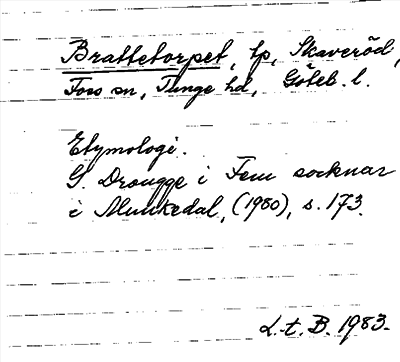 Brattetorpet, tp, Skaveröd,
Foss sn, Tunge hd, Göteb. l.
Etymologi.
G. Drougge i Fem socknar
i Munkedal, (1980), s. 173.
L.t.B. 1983.